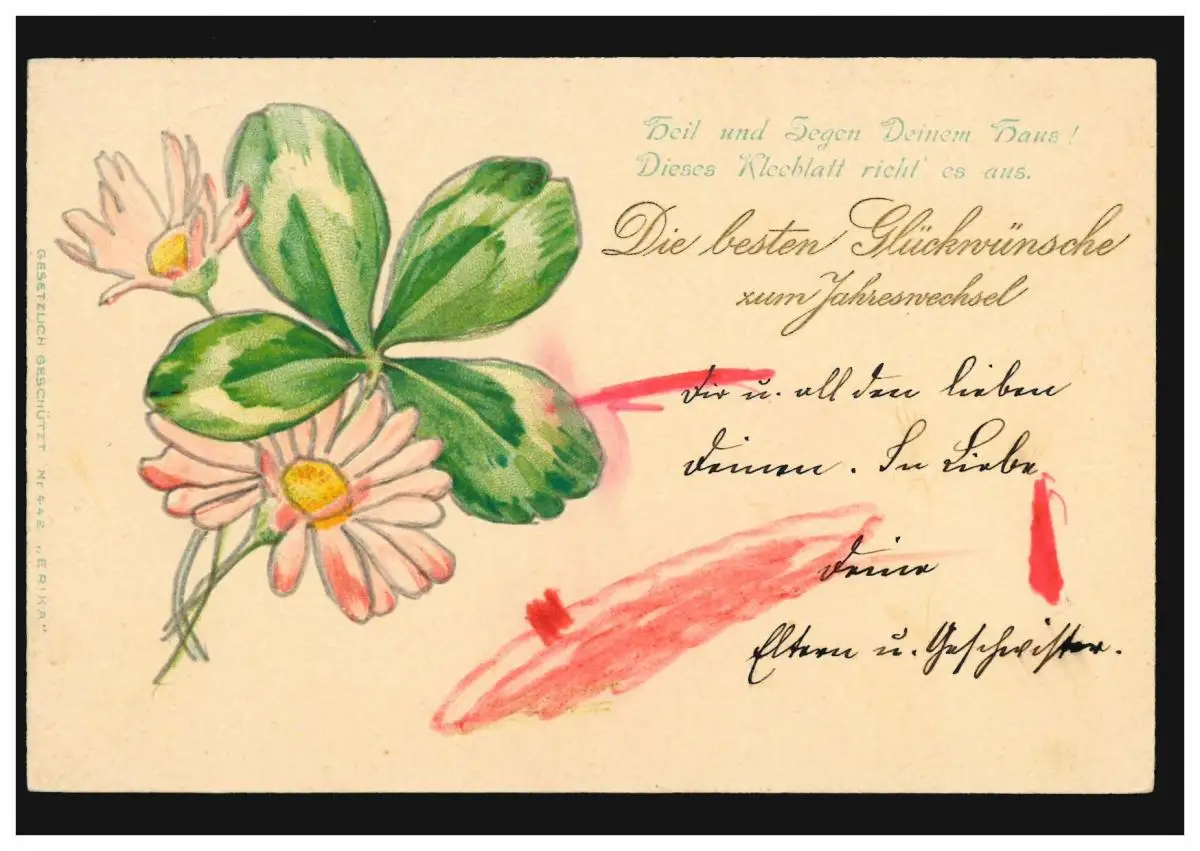 Heil und Segen Deinem Haus!
Dieses Kleeblatt richt' es aus.
Die besten Glückwünsche
zum Jahreswechsel
Dir u. all den lieben
Deinen. In Liebe
Deine
Eltern u. Geschwister.
GESETZLICH GESCHÜTZT Nr 442 „ERIKA"